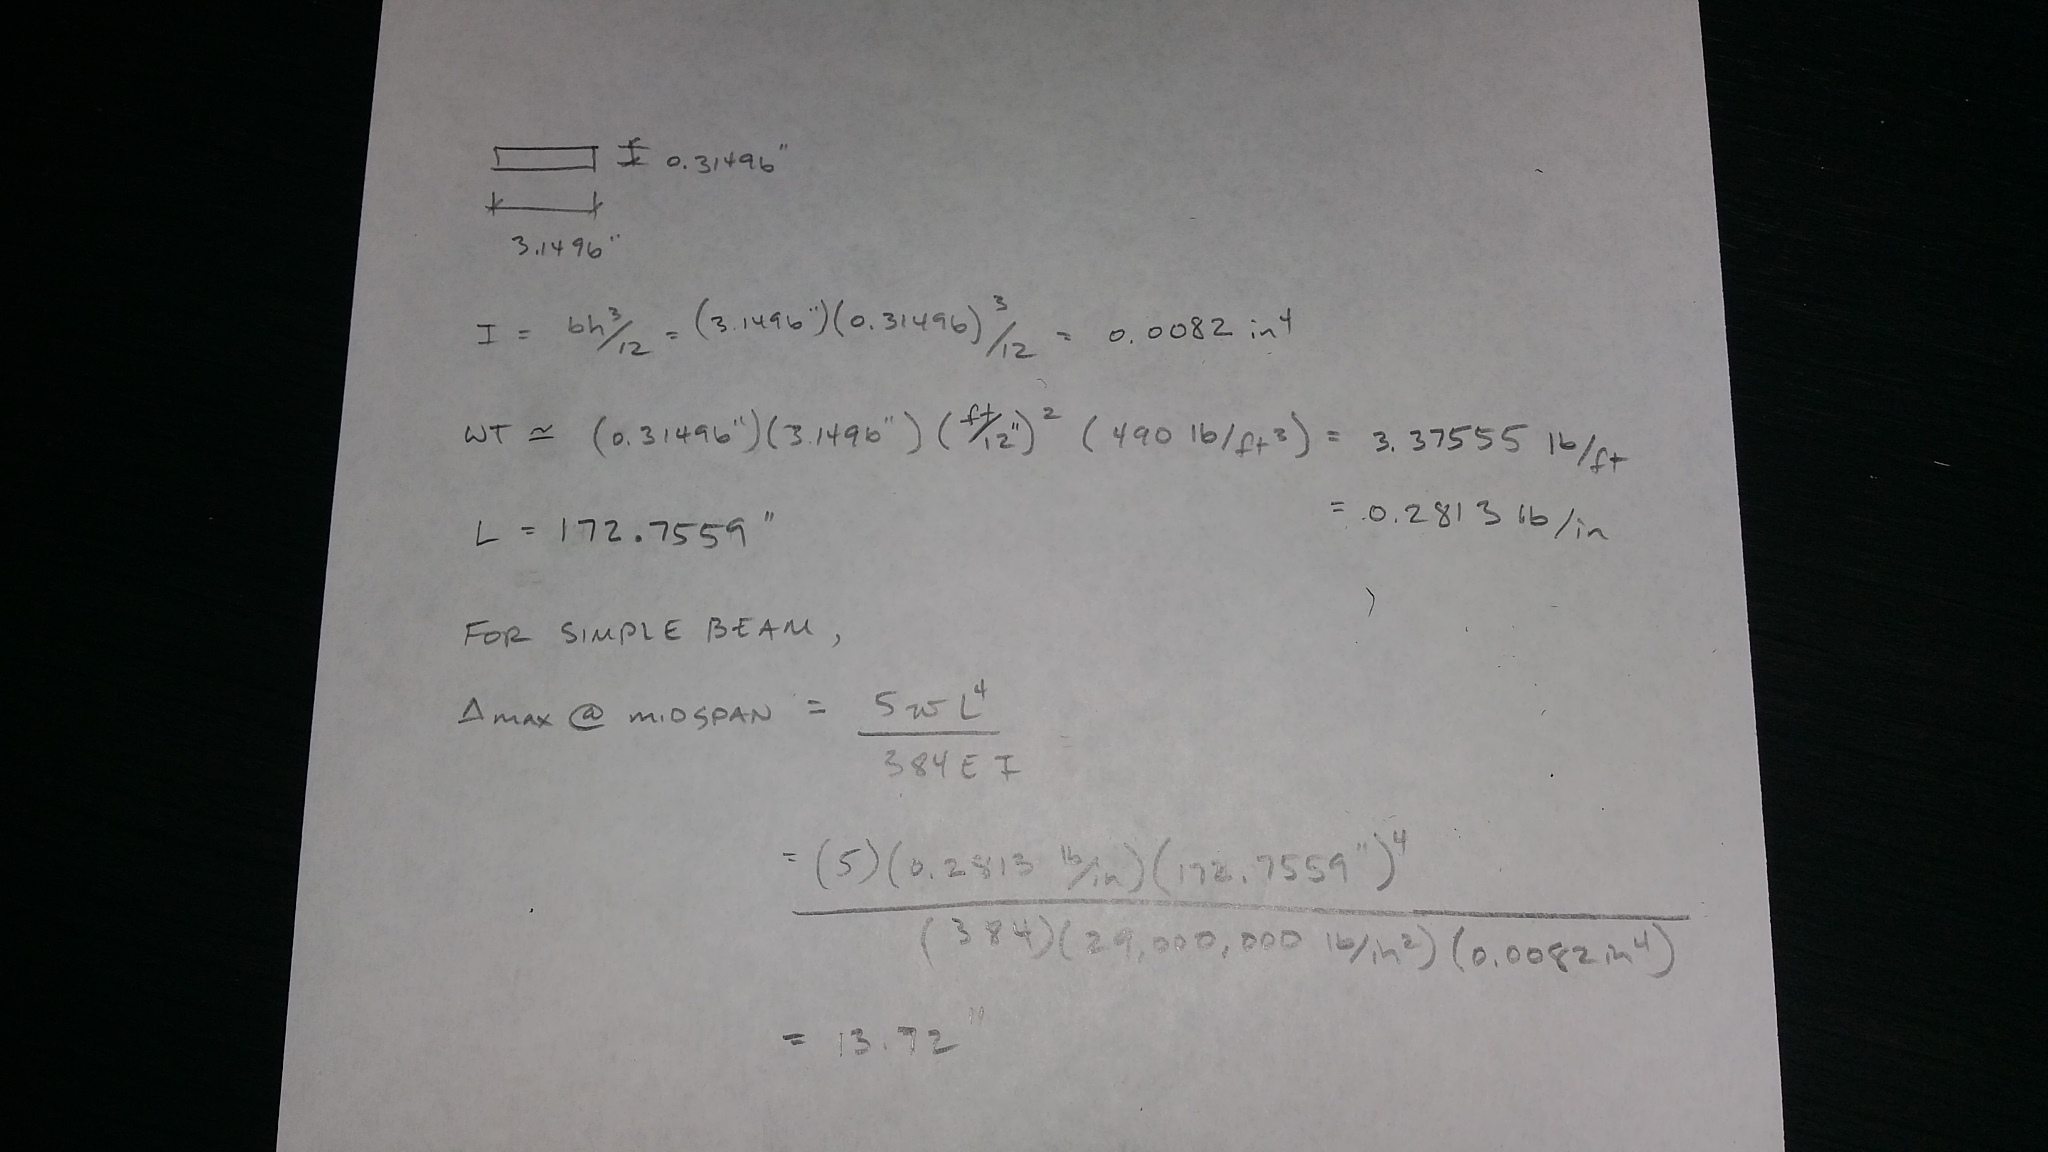 0.31496"
3.1496"
I = bh³/12 = (3.1496")(0.31496)³/12 = 0.0082 in⁴
WT ≅ (0.31496")(3.1496")(ft/12")² (490 lb/ft³) = 3.37555 lb/ft
= 0.2813 lb/in
L = 172.7559"
FOR SIMPLE BEAM,
Δmax @ MIDSPAN = 5wL⁴
384EI
= (5)(0.2813 lb/in)(172.7559")⁴
(384)(29,000,000 lb/in²)(0.0082in⁴)
= 13.72"